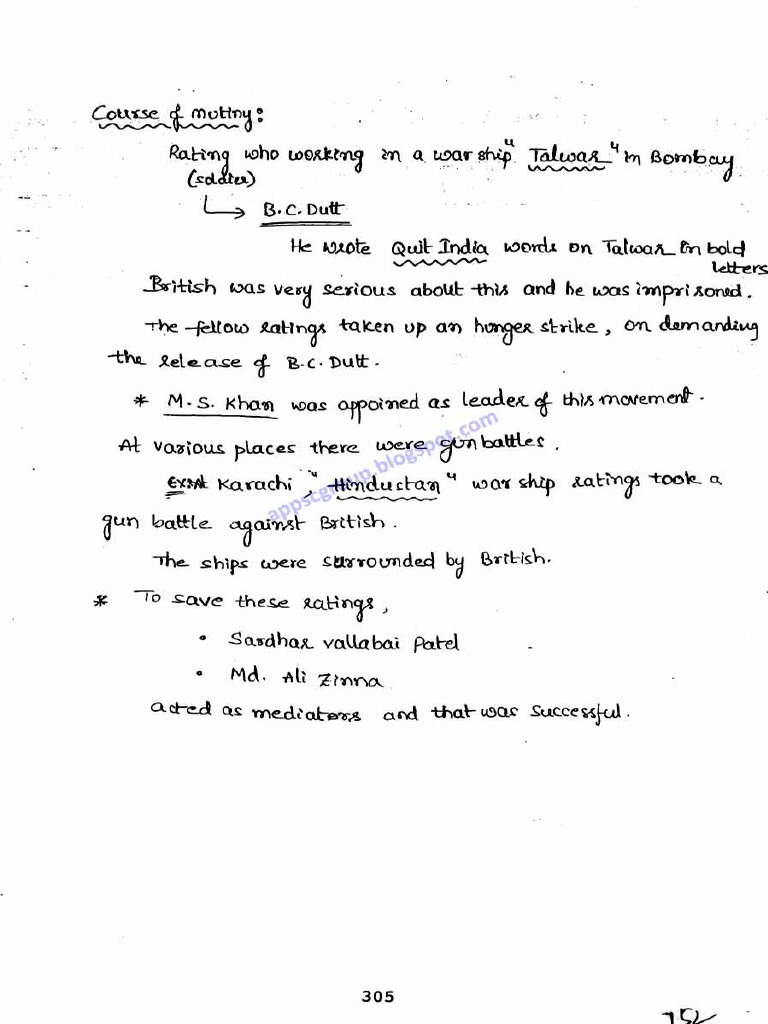 Course of mutiny:
Rating who working in a war ship "Talwar" in Bombay
(soldier)
B.C. Dutt
He wrote Quit India words on Talwar in bold
letters
British was very serious about this and he was imprisoned.
The fellow ratings taken up an hunger strike, on demanding
the release of B.C. Dutt.
* M.S. Khan was appoined as leader of this movement.
At various places there were gun battles.
Karachi, "Hindustan" war ship ratings took a
gun battle against British.
The ships were surrounded by British.
* To save these ratings,
• Sardhar vallabai Patel
• Md. Ali Zinna
acted as mediators and that was successful.
appscgroup.blogspot.com
305